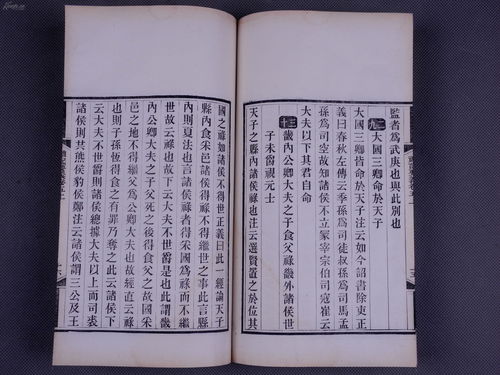 監者爲武庚也與此別也
三九 大國三卿命於天子
大國三卿皆命於天子注云如今詔書除吏正
義曰春秋左傳云季孫爲司徒叔孫爲司馬孟
孫爲司空故知諸侯不立冢宰宗伯司寇崔云
大夫以下其君自命
三十 畿內公卿大夫之子食父祿畿外諸侯世
子未爵視元士
天子之縣內諸侯祿也注云選賢置之於位其
國之祿如諸侯不得世正義曰此一經論天子
縣內食采邑諸侯得祿不得繼世之事此言縣
內則夏法也言諸侯祿者得采國爲祿而不繼
世故云祿也故下云大夫不世爵是也此謂畿
內公卿大夫之子父死之後得食父之故國采
邑之地不得繼父爲公卿大夫也故經直云祿
也則子孫恆得食之有罪乃奪之此云諸侯下
云大夫不世爵則諸侯總據大夫以上而司裘
諸侯則共熊侯豹侯鄭注云諸侯謂三公及王